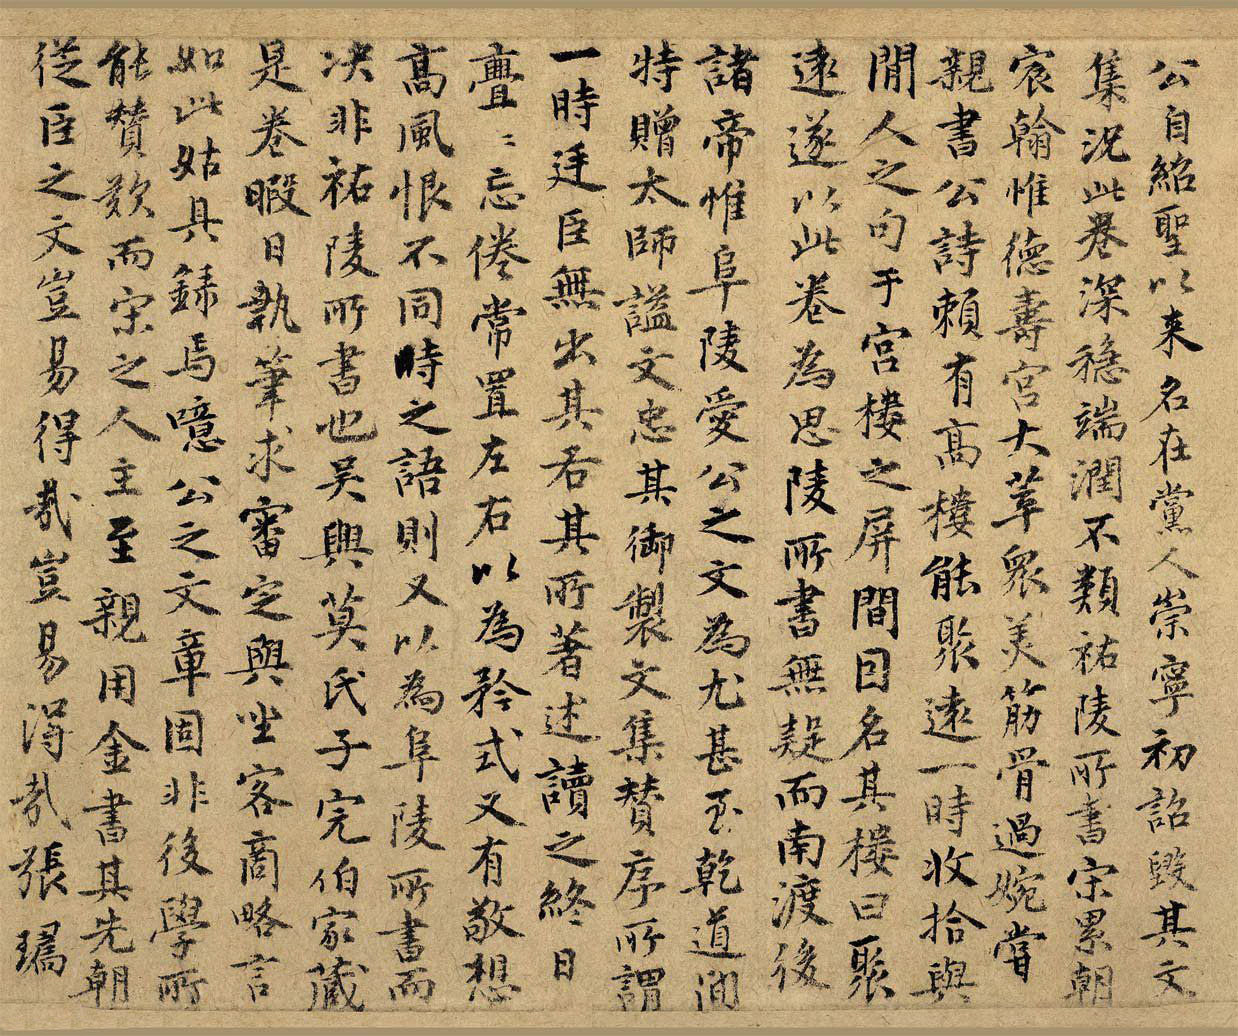 公自紹聖以来名在黨人崇寧初詔毀其文
集況此卷深穩端潤不類祐陵所書宋累朝
宸翰惟德壽宮大萃衆美筋骨過婉嘗
親書公詩賴有高樓能聚遠一時收拾與
閒人之句于宮樓之屏間因名其樓曰聚
遠遂以此卷為思陵所書無疑而南渡後
諸帝惟阜陵愛公之文為尤甚至乾道間
特贈太師謚文忠其御製文集贊序所謂
一時廷臣無出其右其所著述讀之終日
亹〻忘倦常置左右以為矜式又有敬想
高風恨不同時之語則又以為阜陵所書而
决非祐陵所書也吴興莫氏子完伯家藏
是卷暇日執筆求審定與坐客商略言
如此姑具錄焉噫公之文章固非後學所
能贊歎而宋之人主至親用金書其先朝
從臣之文豈易得哉豈易得哉張瑦